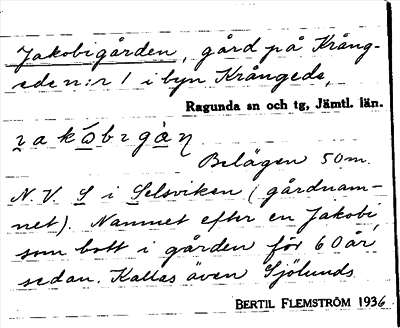 Jakobigården, gård på Krång-
ede n:r 1 i byn Krångede,
Ragunda sn och tg, Jämtl. län.
Belägen 50 m.
N.V. S i Selsviken (gårdnam-
net). Namnet efter en Jakobi,
som bott i gården för 60 år
sedan. Kallas även Sjölunds
BERTIL FLEMSTRÖM 1936